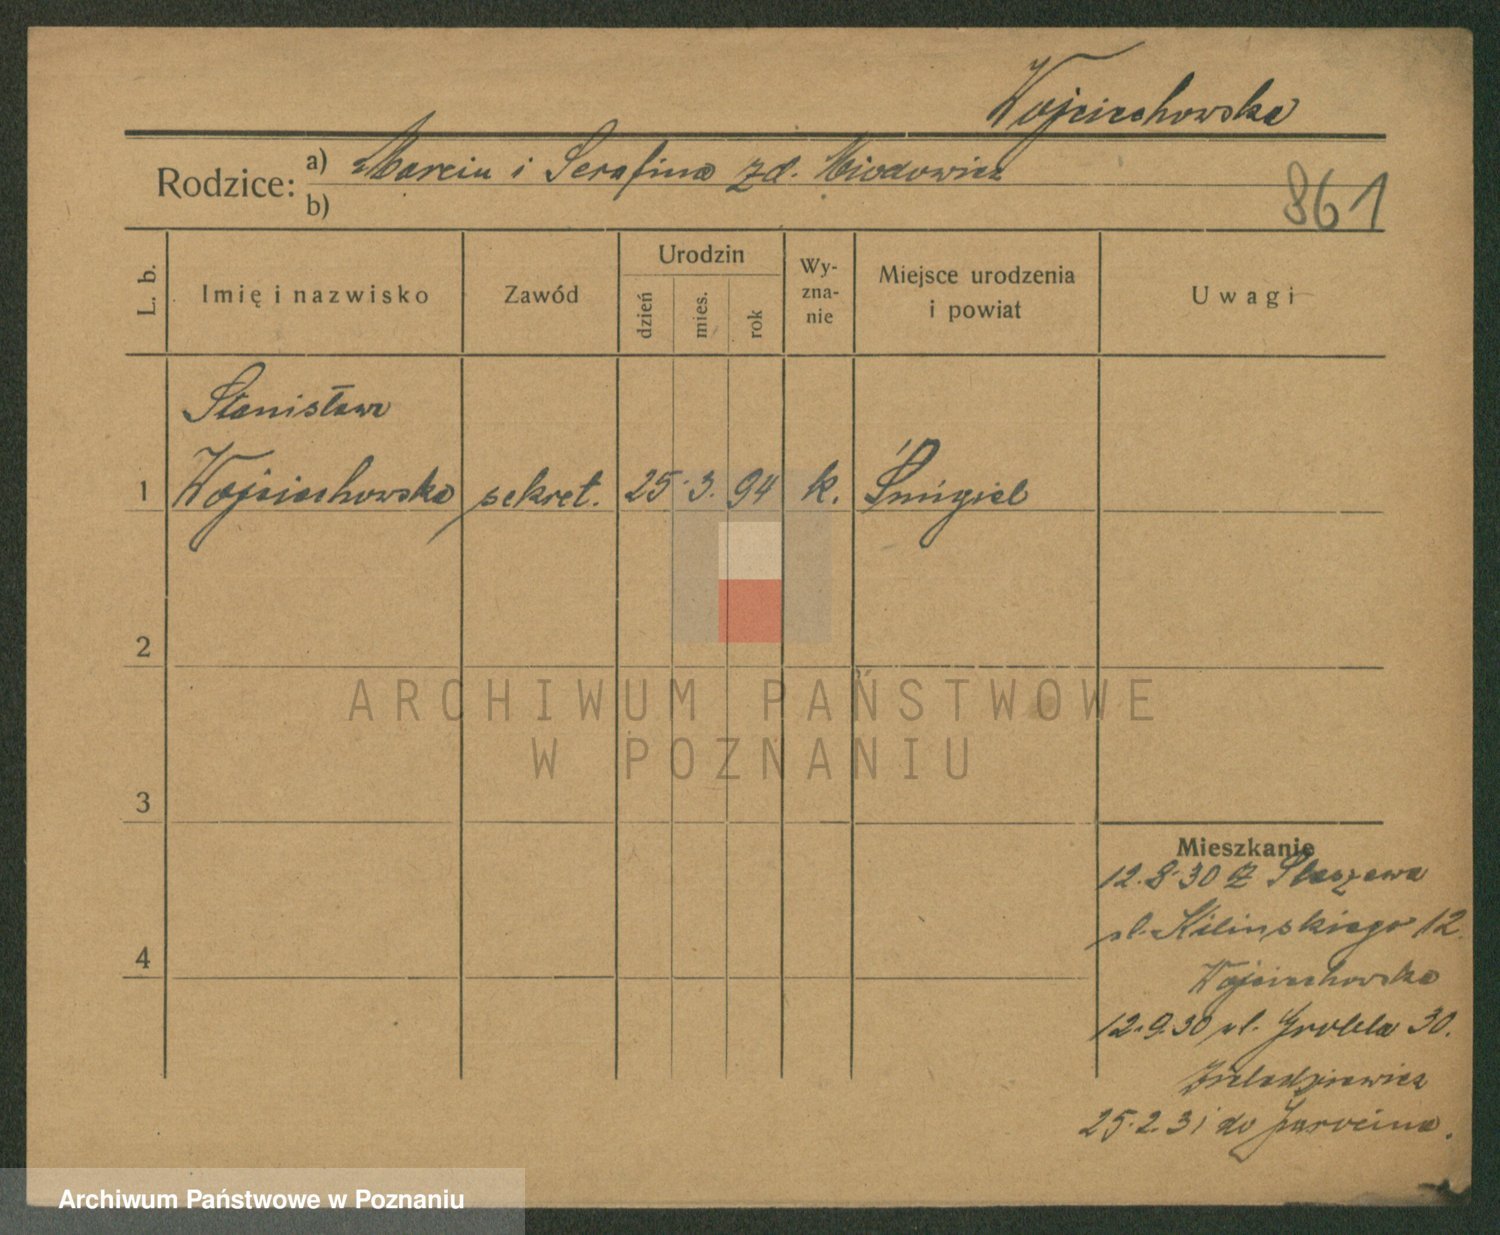 Wojciechowska
Rodzice: a) Marcin i Serafina zd. Miodowicz
b)
861
L. b.
Imię i nazwisko
Zawód
Urodzin
dzień
mies.
rok
Wy-
zna-
nie
Miejsce urodzenia
i powiat
Uwagi
Stanisława
1 Wojciechowska sekret. 25. 3. 94 k. Śmigiel
2
3
4
ARCHIWUM PAŃSTWOWE
W POZNANIU
Mieszkanie
12.8.30 z
ul. Kilinskiego 12.
Wojciechowska
12.9.30 ul. Grobla 30.
25.2.31 do Jarocina.
Archiwum Państwowe w Poznaniu